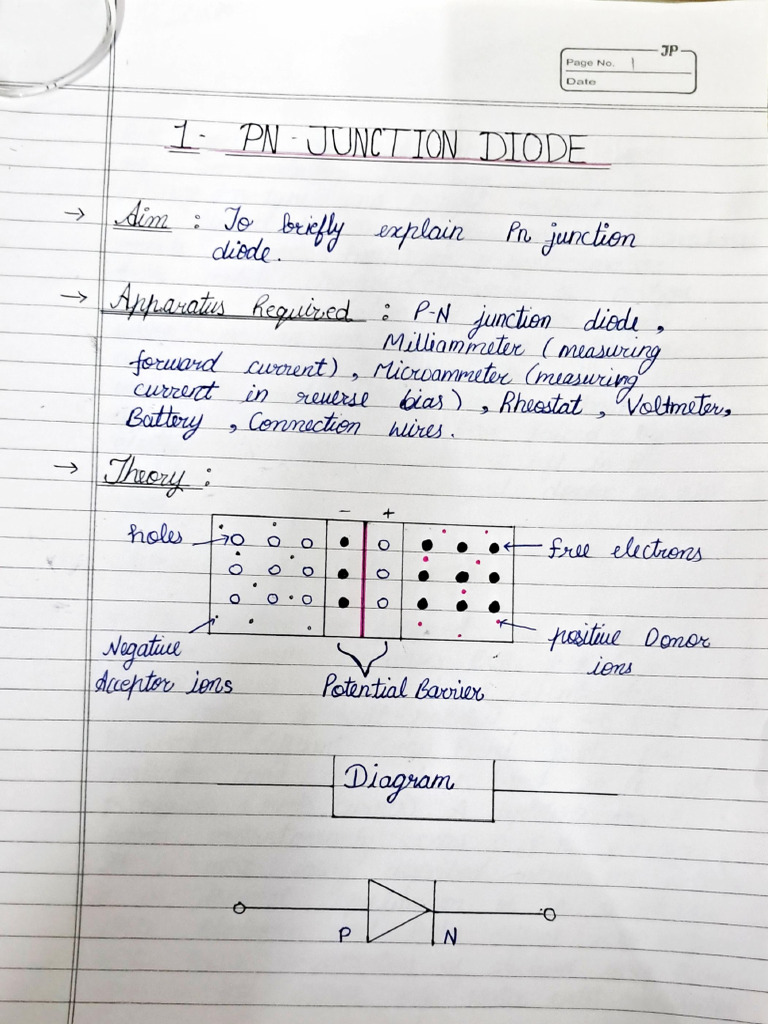 JP
Page No. 1
Date
1- PN-JUNCTION DIODE
→ Aim : To briefly explain Pn junction
diode.
→ Apparatus Required : P-N junction diode,
Milliammeter (measuring
forward current), Microammeter (measuring
current in reverse bias), Rheostat, Voltmeter,
Battery, Connection wires.
→ Theory :
- +
holes
free electrons
Negative
Acceptor ions
positive Donor
ions
Potential Barrier
Diagram
P N